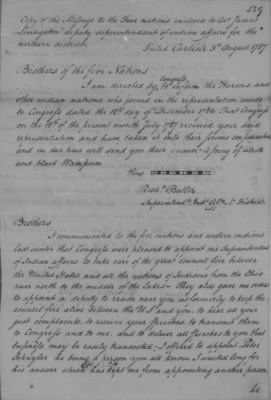 529
Copy of the Message to the five nations inclosed to Col James
Livingston deputy superintendent of indian affairs for the
northern district
Carlisle 3d August 1787
Brothers of the five Nations
I am directed by Congress to inform the Hurons, and
other indian nations who joined in the representation made
to Congress dated the 18th of December 1786 That Congress
on the of the present month July 1787 received your said
representation and have taken it into their serious consideration
and in due time will send you their answer a string of white
and black Wampum
thus
Richd Butler
Superintendt Indn Affrs Nn District
Brothers
I communicated to the five nations and western indians
last winter that Congress were pleased to appoint me Superintendent
of Indian affairs to take care of the great council fire between
the United States and all the nations of Indians from the Ohio
river north to the middle of the Lakes They also gave me orders
to appoint a deputy to reside near you as formerly, to keep the
council fire alive between the U.S and you to hear all your
just complaints, to receive your speeches to transmit them
to Congress and to me. And to deliver all speeches to you that
business may be easily transacted I offered to appoint Peter
Schuyler he being a person you all know. I waited long for
his answer which has kept me from appointing another person
to